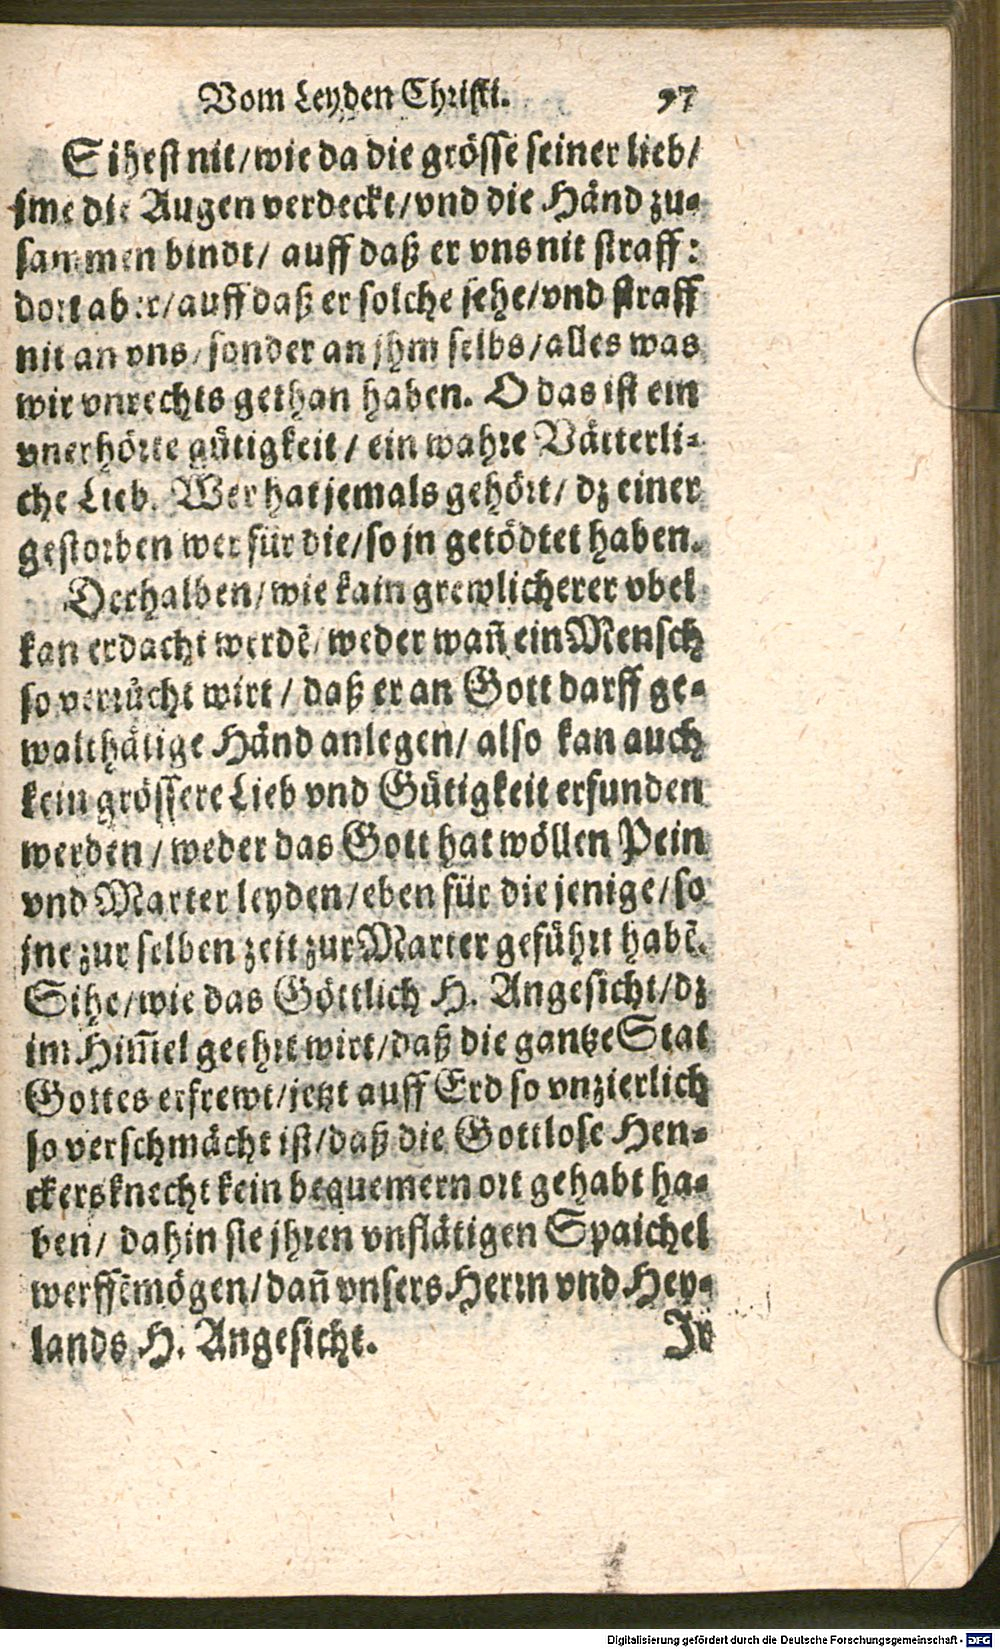 Vom Leyden Christi. 97
Sihest nit/wie da die grösse seiner lieb/
jme die Augen verdeckt/vnd die Händ zu-
sammen bindt/ auff daß er vns nit straff:
dort aber/auff daß er solche sehe/vnd straff
nit an vns/sonder an jhm selbs/alles was
wir vnrechts gethan haben. O das ist ein
vnerhörte gütigkeit/ ein wahre Vätterli-
che Lieb. Wer hat jemals gehört/ dz einer
gestorben wer für die/so jn getödtet haben.
Derhalben/wie kain grewlicherer vbel
kan erdacht werdẽ/weder wañ ein Mensch
so verrücht wirt/ daß er an Gott darff ge-
walthätige Händ anlegen/ also kan auch
kein grössere Lieb vnd Gütigkeit erfunden
werden/weder das Gott hat wöllen Pein
vnd Marter leyden/eben für die jenige/so
jne zur selben zeit zur Marter geführt habẽ.
Sihe/wie das Göttlich H. Angesicht/dz
im Him̃el geehrt wirt/daß die gantze Stat
Gottes erfrewt/jetzt auff Erd so vnzierlich
so verschmächt ist/daß die Gottlose Hen-
ckersknecht kein bequemern ort gehabt ha-
ben/ dahin sie jhren vnflätigen Spaichel
werffẽ mögen/dañ vnsers Herrn vnd Hey-
lands H. Angesicht.
Ir
Digitalisierung gefördert durch die Deutsche Forschungsgemeinschaft - DFG